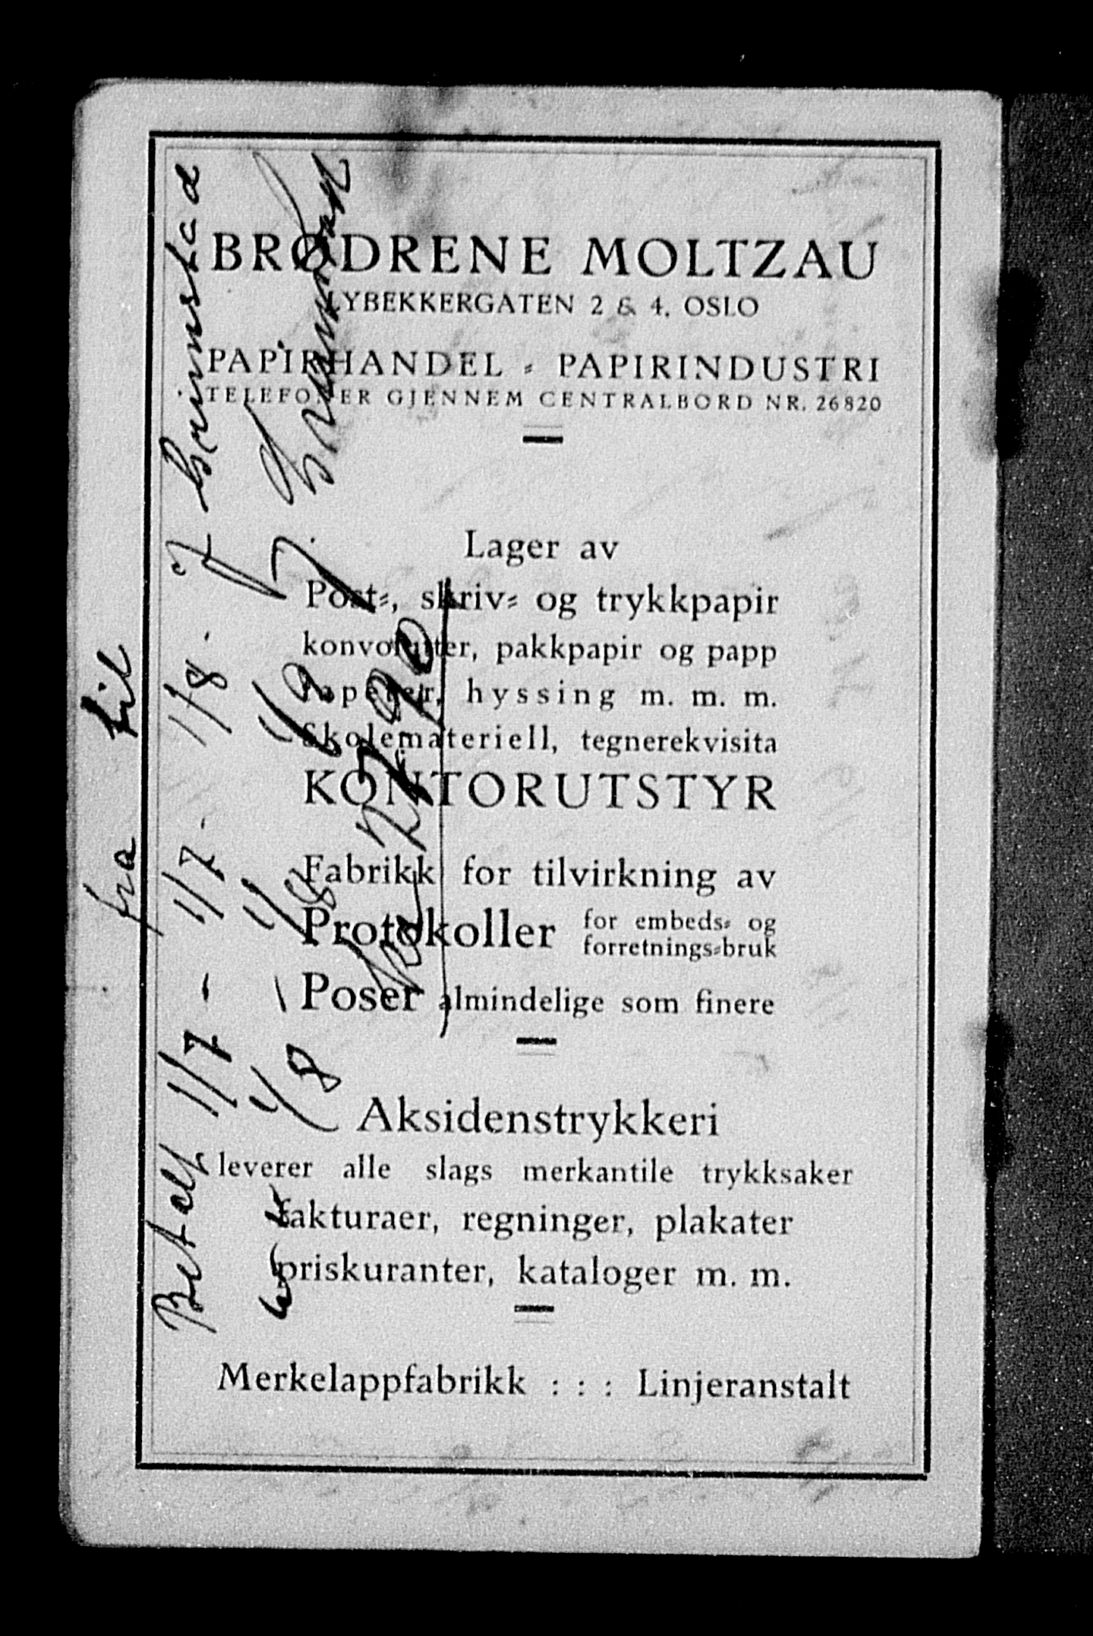 BRØDRENE MOLTZAU
LYBEKKERGATEN 2 & 4, OSLO
PAPIRHANDEL ⸗ PAPIRINDUSTRI
TELEFONER GJENNEM CENTRALBORD NR. 26820
Lager av
Post⸗, skriv⸗ og trykkpapir
konvolutter, pakkpapir og papp
Tapeter, hyssing m. m. m.
Skolemateriell, tegnerekvisita
KONTORUTSTYR
Fabrikk for tilvirkning av
Protokoller for embeds⸗ og
forretnings⸗bruk
Poser almindelige som finere
Aksidenstrykkeri
leverer alle slags merkantile trykksaker
fakturaer, regninger, plakater
priskuranter, kataloger m. m.
Merkelappfabrikk : : : Linjeranstalt
fra til
Betalt 1/7 - 1/7 - 1/8 - J Grimstad
1/8 1/8